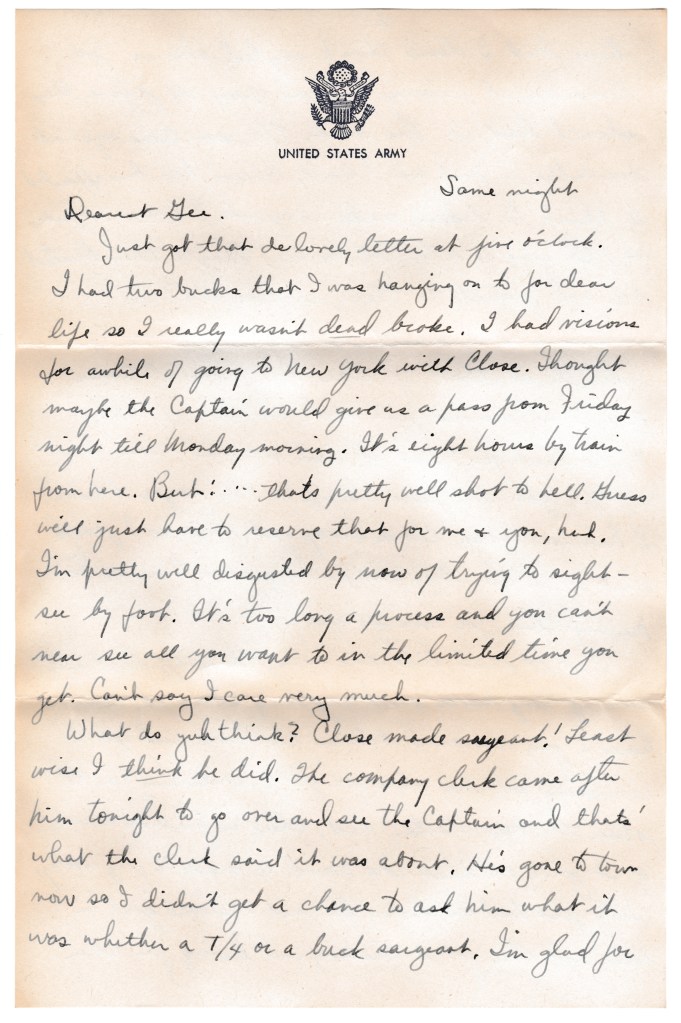 UNITED STATES ARMY
Same night
Dearest Gee.
Just got that de lovely letter at five o'clock.
I had two bucks that I was hanging on to for dear
life so I really wasn't dead broke. I had visions
for awhile of going to New York with Close. Thought
maybe the Captain would give us a pass from Friday
night till Monday morning. It's eight hours by train
from here. But! .... thats pretty well shot to hell. Guess
we'll just have to reserve that for me & you, hud.
I'm pretty well disgusted by now of trying to sight-
see by foot. It's too long a process and you can't
near see all you want to in the limited time you
get. Can't say I care very much.
What do yuh think? Close made sargeant! Least
wise I think he did. The company clerk came after
him tonight to go over and see the Captain and thats'
what the clerk said it was about. He's gone to town
now so I didn't get a chance to ask him what it
was whether a T/4 or a buck sargeant. I'm glad for